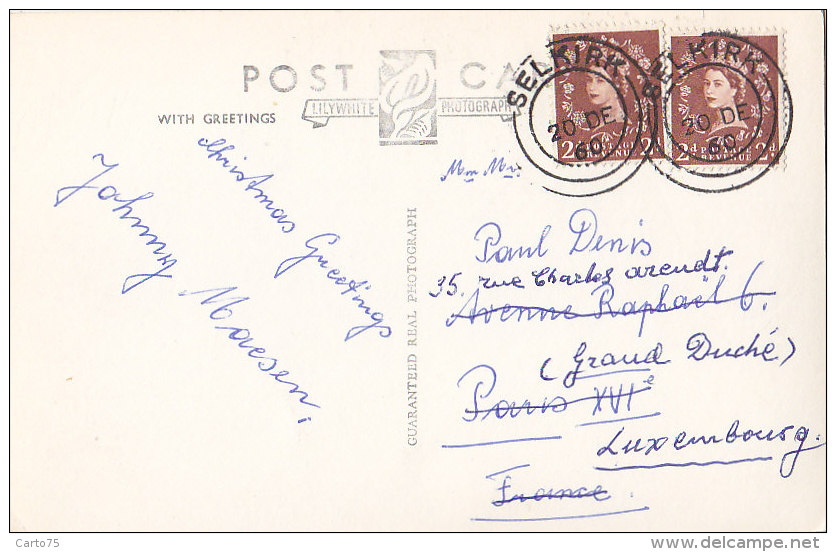 POST CA
LILYWHITE PHOTOGRAPH
WITH GREETINGS
SELKIRK
20 DE
60
SELKIRK
20 DE
60
2d POSTAGE REVENUE 2d
2d POSTAGE REVENUE 2d
Christmas Greetings
Johnny Maesen.
GUARANTEED REAL PHOTOGRAPH
Paul Denis
35. rue Charles arendt.
Avenue Raphaël 6.
(Grand Duché)
Paris XVIe
Luxembourg.
France.
Carto75
www.delcampe.net